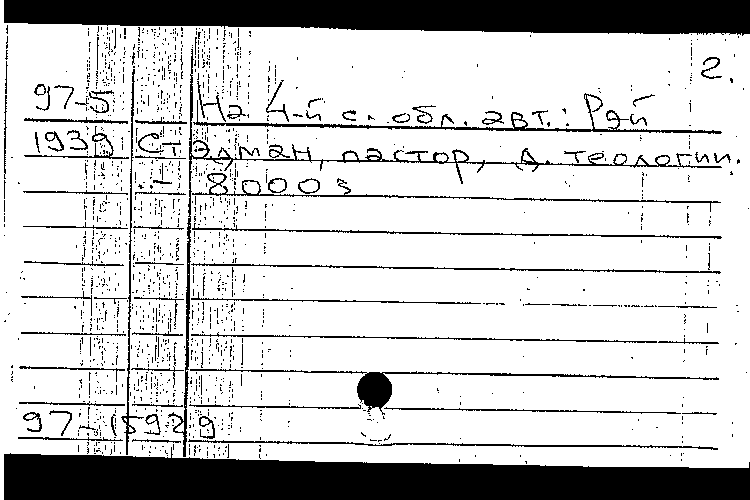 2.
97-5 На 4-й с. обл. авт.: Рэй
1939 Стэдман, пастор, д. теологии.
.- 8000 э
97-15929